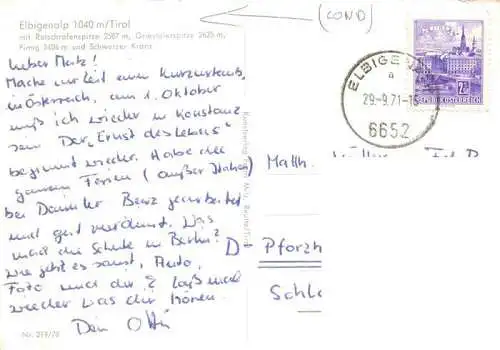 Elbigenalp 1040 m/Tirol
mit Rotschrofenspitze 2587 m, Greistalerspitze 2625 m,
Fimig 2426 m und Schwarzer Kranz
(COND)
Lieber Matz!
Mache zur Zeit einen Kurzurlaub
in Österreich, am 1. Oktober
muß ich wieder in Konstanz
sein. Der "Ernst des Lebens"
beginnt wieder. Habe die
ganzen Ferien (außer Italien)
bei Daimler Benz gearbeitet
und gut verdient. Was
macht die Schule in Berlin?
Wie geht es sonst, Auto,
Foto und der ? Laß mal
wieder was dir hören.
Dein Otti
Nr. 219/70
ELBIGEN
a
29.-9.71-15
6652
REPUBLIK ÖSTERREICH
Matth.
D Pforzh
Schl